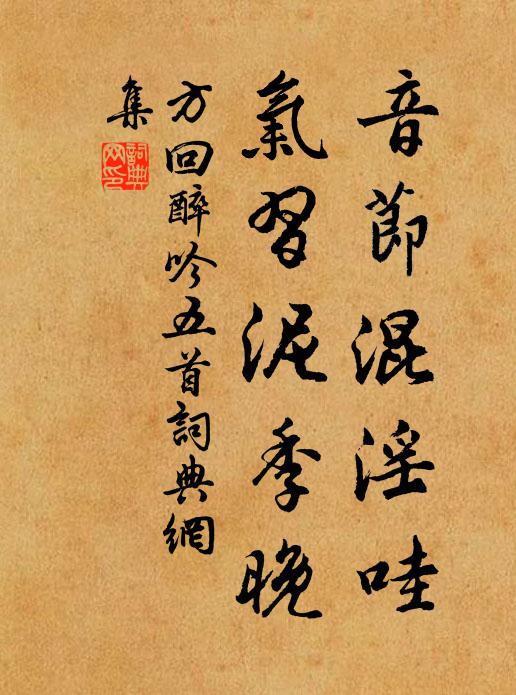 音節混淫哇
氣習泥季晚
方回醉吟五首詞典網
集
詞典網印